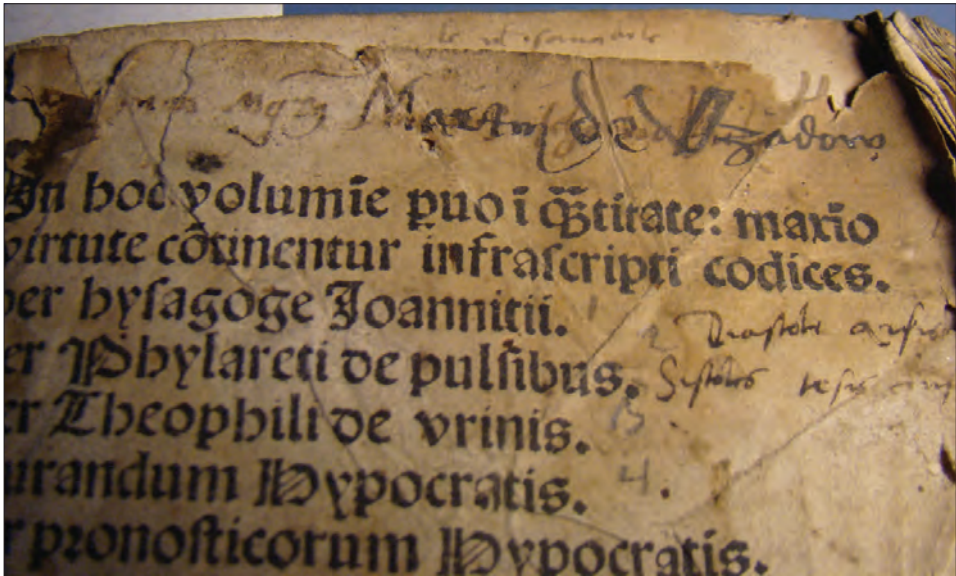 Martin de
In hoc volumīe ꝑuo ī q̄titate: maxīo
virtute cōtinentur infraſcripti codices.
ber hyſagoge Joannitii. 1
er Phylareti de pulſibus. 2 Diastole
Sistoles
er Theophili de vrinis. 3
urandum Hypocratis. 4.
r pronoſticorum Hypocratis.